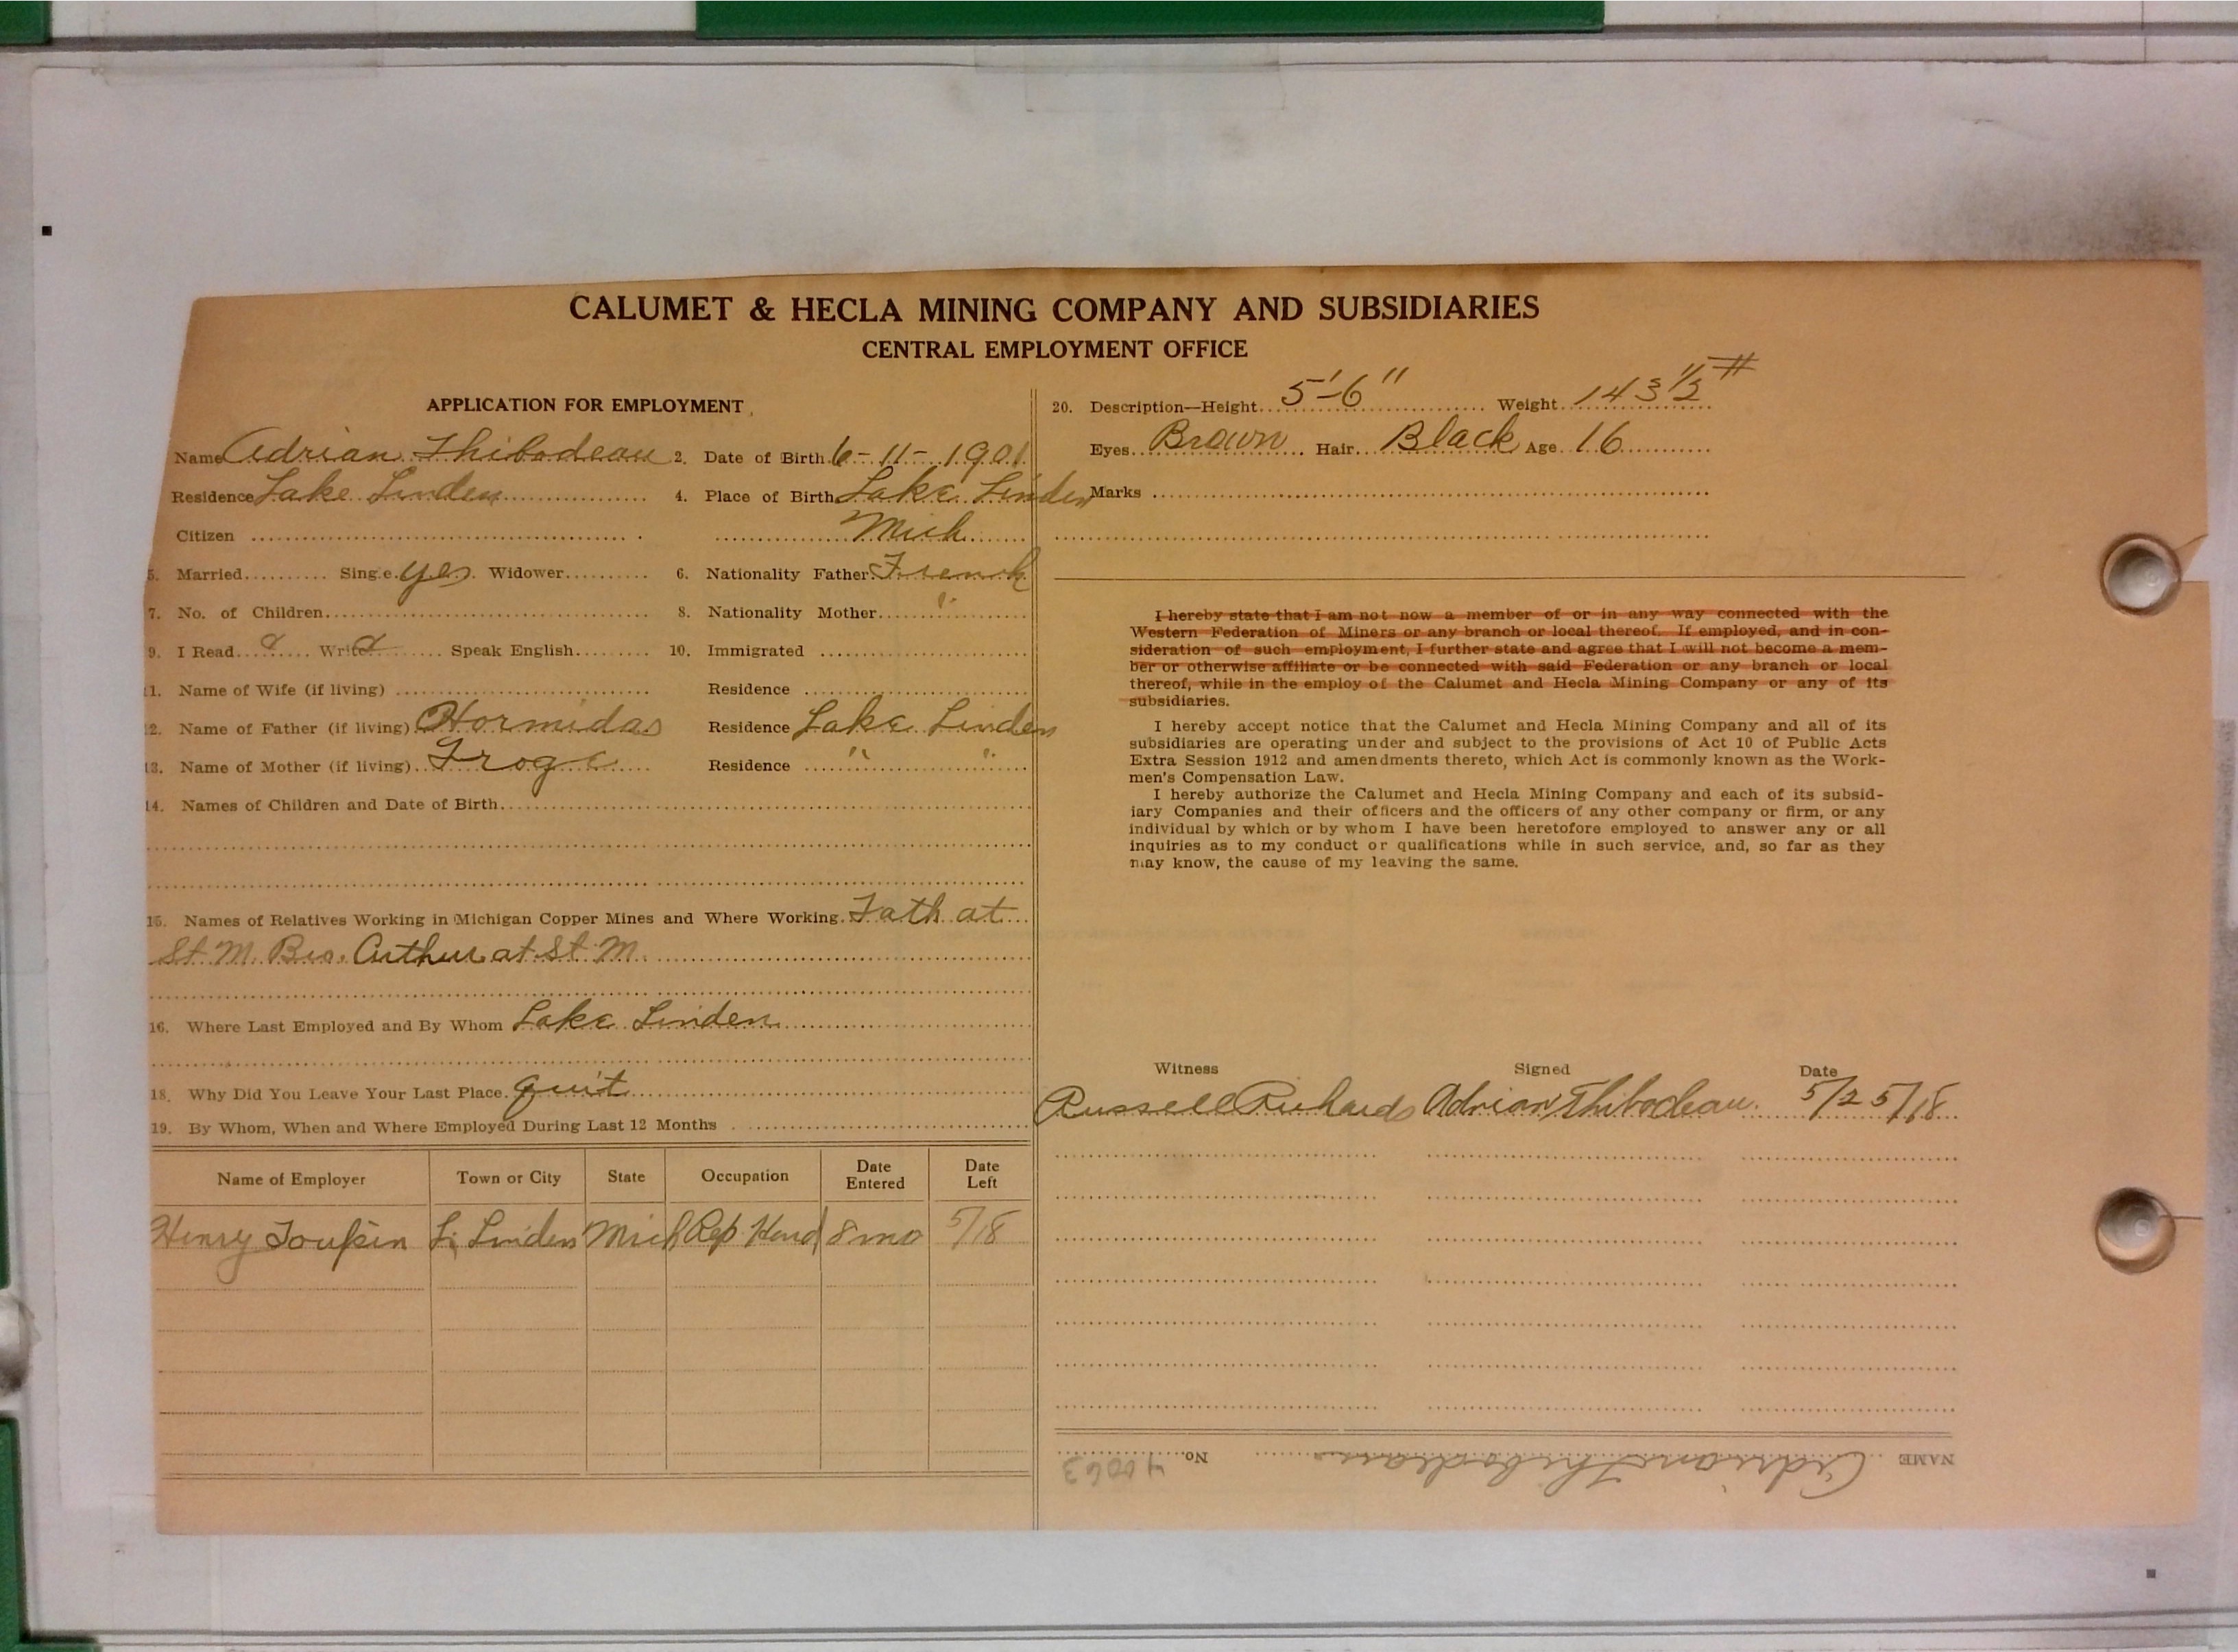 CALUMET & HECLA MINING COMPANY AND SUBSIDIARIES
CENTRAL EMPLOYMENT OFFICE
APPLICATION FOR EMPLOYMENT
Name Adrian Thibodeau 2. Date of Birth 6-11-1901
Residence Lake Linden 4. Place of Birth Lake Linden
Citizen Mich
5. Married Single yes Widower 6. Nationality Father French
7. No. of Children 8. Nationality Mother "
9. I Read Write Speak English 10. Immigrated
11. Name of Wife (if living) Residence
12. Name of Father (if living) Hormidas Residence Lake Linden
13. Name of Mother (if living) Residence " "
14. Names of Children and Date of Birth
15. Names of Relatives Working in Michigan Copper Mines and Where Working. Fath at
St. M. Bro. Arthur at St. M.
16. Where Last Employed and By Whom Lake Linden
18. Why Did You Leave Your Last Place. quit
19. By Whom, When and Where Employed During Last 12 Months
Name of Employer Town or City State Occupation Date Entered Date Left
Henry L. Linden Mich 8 mo 5/18
20. Description—Height 5'-6" Weight 143 1/2 #
Eyes Brown Hair Black Age 16
Marks
I hereby state that I am not now a member of or in any way connected with the
Western Federation of Miners or any branch or local thereof. If employed, and in con-
sideration of such employment, I further state and agree that I will not become a mem-
ber or otherwise affiliate or be connected with said Federation or any branch or local
thereof, while in the employ of the Calumet and Hecla Mining Company or any of its
subsidiaries.
I hereby accept notice that the Calumet and Hecla Mining Company and all of its
subsidiaries are operating under and subject to the provisions of Act 10 of Public Acts
Extra Session 1912 and amendments thereto, which Act is commonly known as the Work-
men's Compensation Law.
I hereby authorize the Calumet and Hecla Mining Company and each of its subsid-
iary Companies and their officers and the officers of any other company or firm, or any
individual by which or by whom I have been heretofore employed to answer any or all
inquiries as to my conduct or qualifications while in such service, and, so far as they
may know, the cause of my leaving the same.
Witness Signed Date
Russell Richards Adrian Thibodeau 5/25/18
NAME Adrian Thibodeau No. 40063